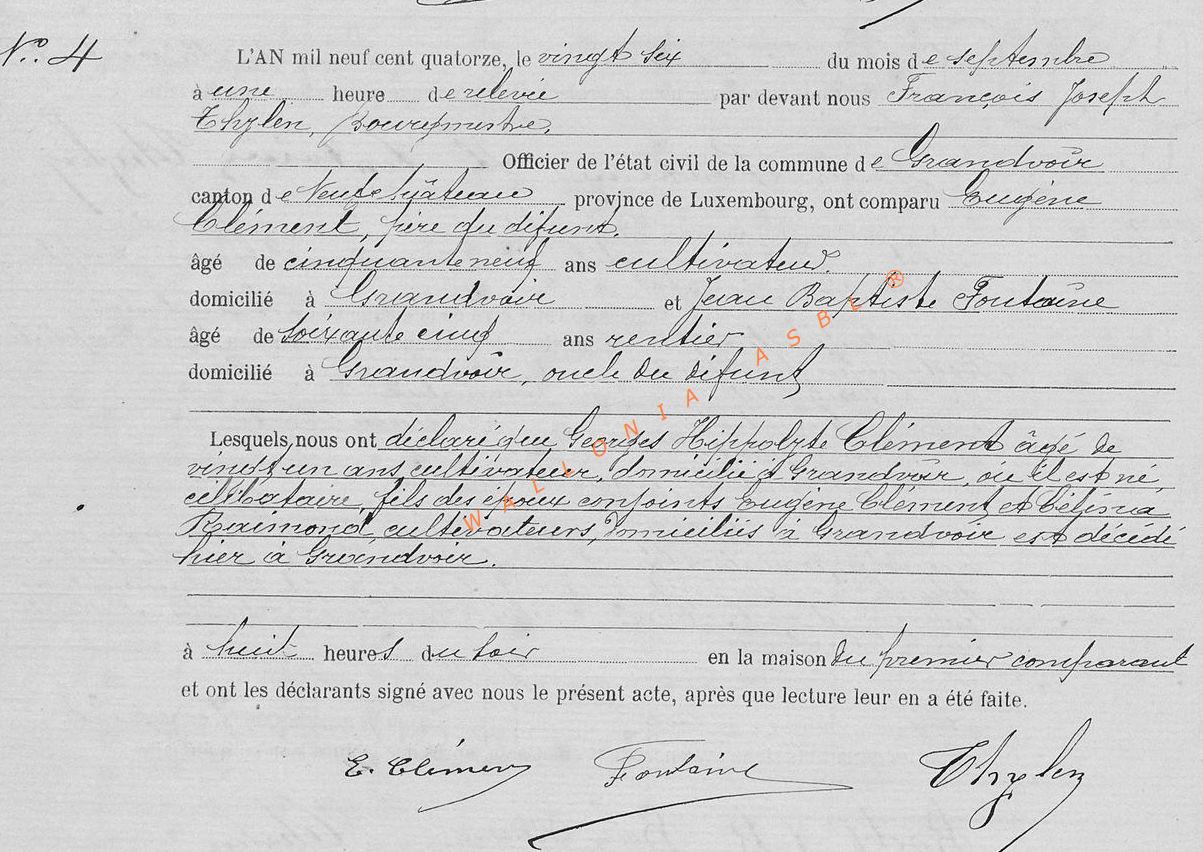 N°. 4
L'AN mil neuf cent quatorze, le vingt six du mois de septembre
à une heure de relevée par devant nous François Joseph
Thylen, bourgmestre,
Officier de l'état civil de la commune de Grandvoir
canton de Neufchâteau province de Luxembourg, ont comparu Eugène
Clément, père du défunt,
âgé de cinquante neuf ans cultivateur.
domicilié à Grandvoir et Jean Baptiste Fontaine
âgé de soixante cinq ans rentier
domicilié à Grandvoir, oncle du défunt
Lesquels, nous ont déclaré que Georges Hippolyte Clément âgé de
vingt un ans cultivateur, domicilié à Grandvoir, où il est né
célibataire, fils des époux conjoints Eugène Clément et Célina
Raimond, cultivateurs, domiciliés à Grandvoir est décédé
hier à Grandvoir.
à huit heures du soir en la maison du premier comparant
et ont les déclarants signé avec nous le présent acte, après que lecture leur en a été faite.
E. Clément Fontaine Thylen
WALLONIA ASBL ®